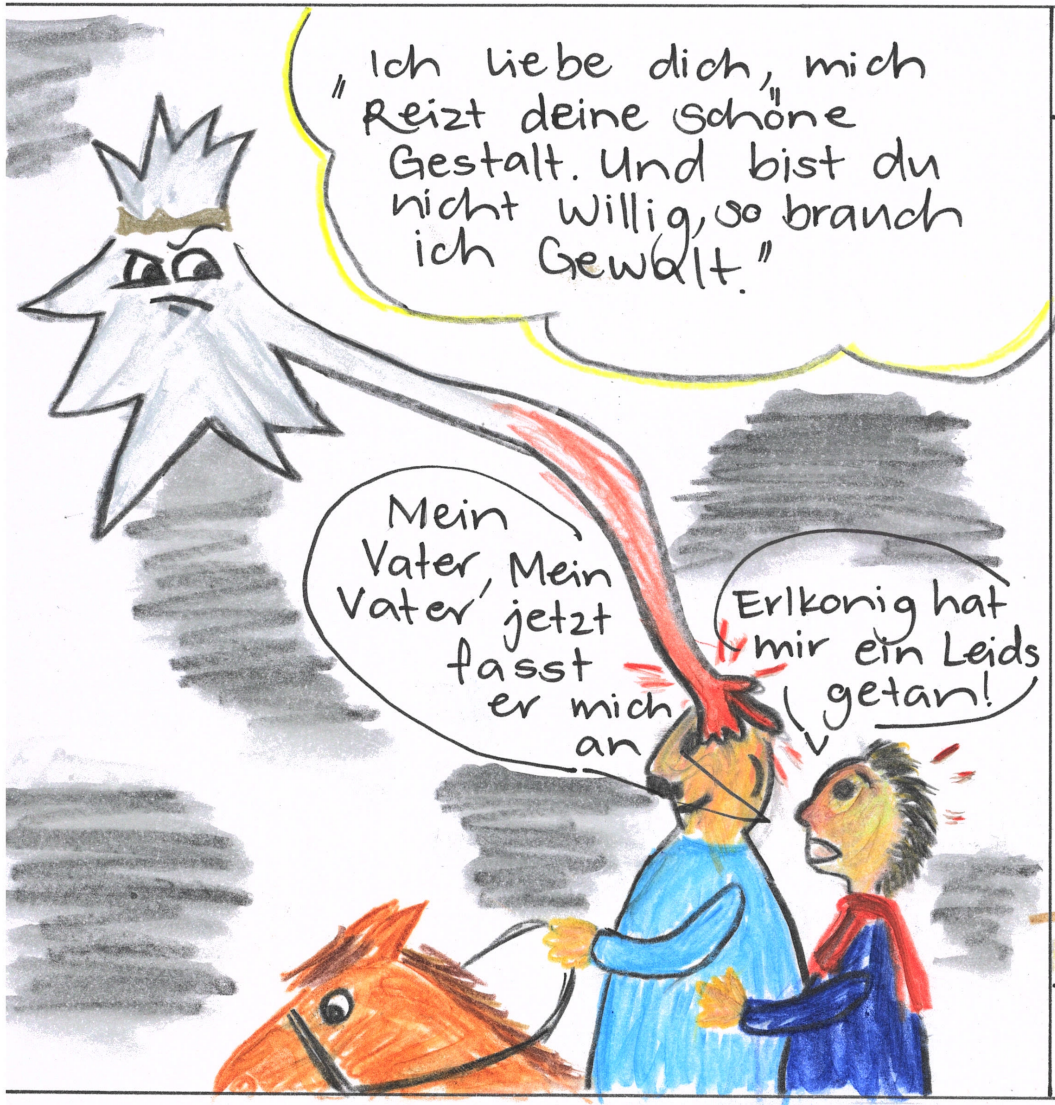 „Ich liebe dich, mich
Reizt deine schöne
Gestalt. Und bist du
nicht willig, so brauch
ich Gewalt."
Mein
Vater, Mein
Vater jetzt
fasst
er mich
an
Erlkonig hat
mir ein Leids
getan!